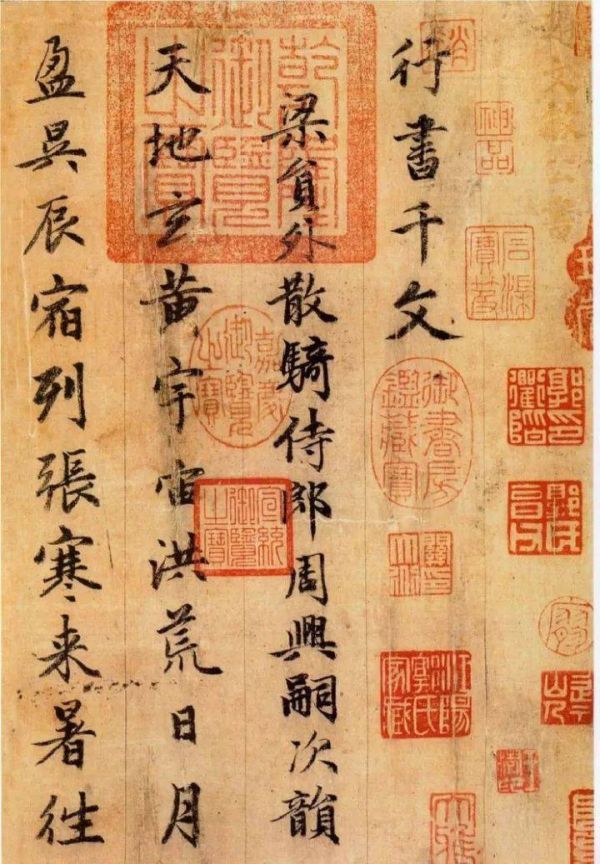 神品
石渠寶笈
行書千文
御書房鑑藏寶
梁貟外散騎侍郎周興嗣次韻
乾隆御覽之寶
嘉慶御覽之寶
宣統御覽之寶
天地玄黄宇宙洪荒日月
盈昃辰宿列張寒来暑徃